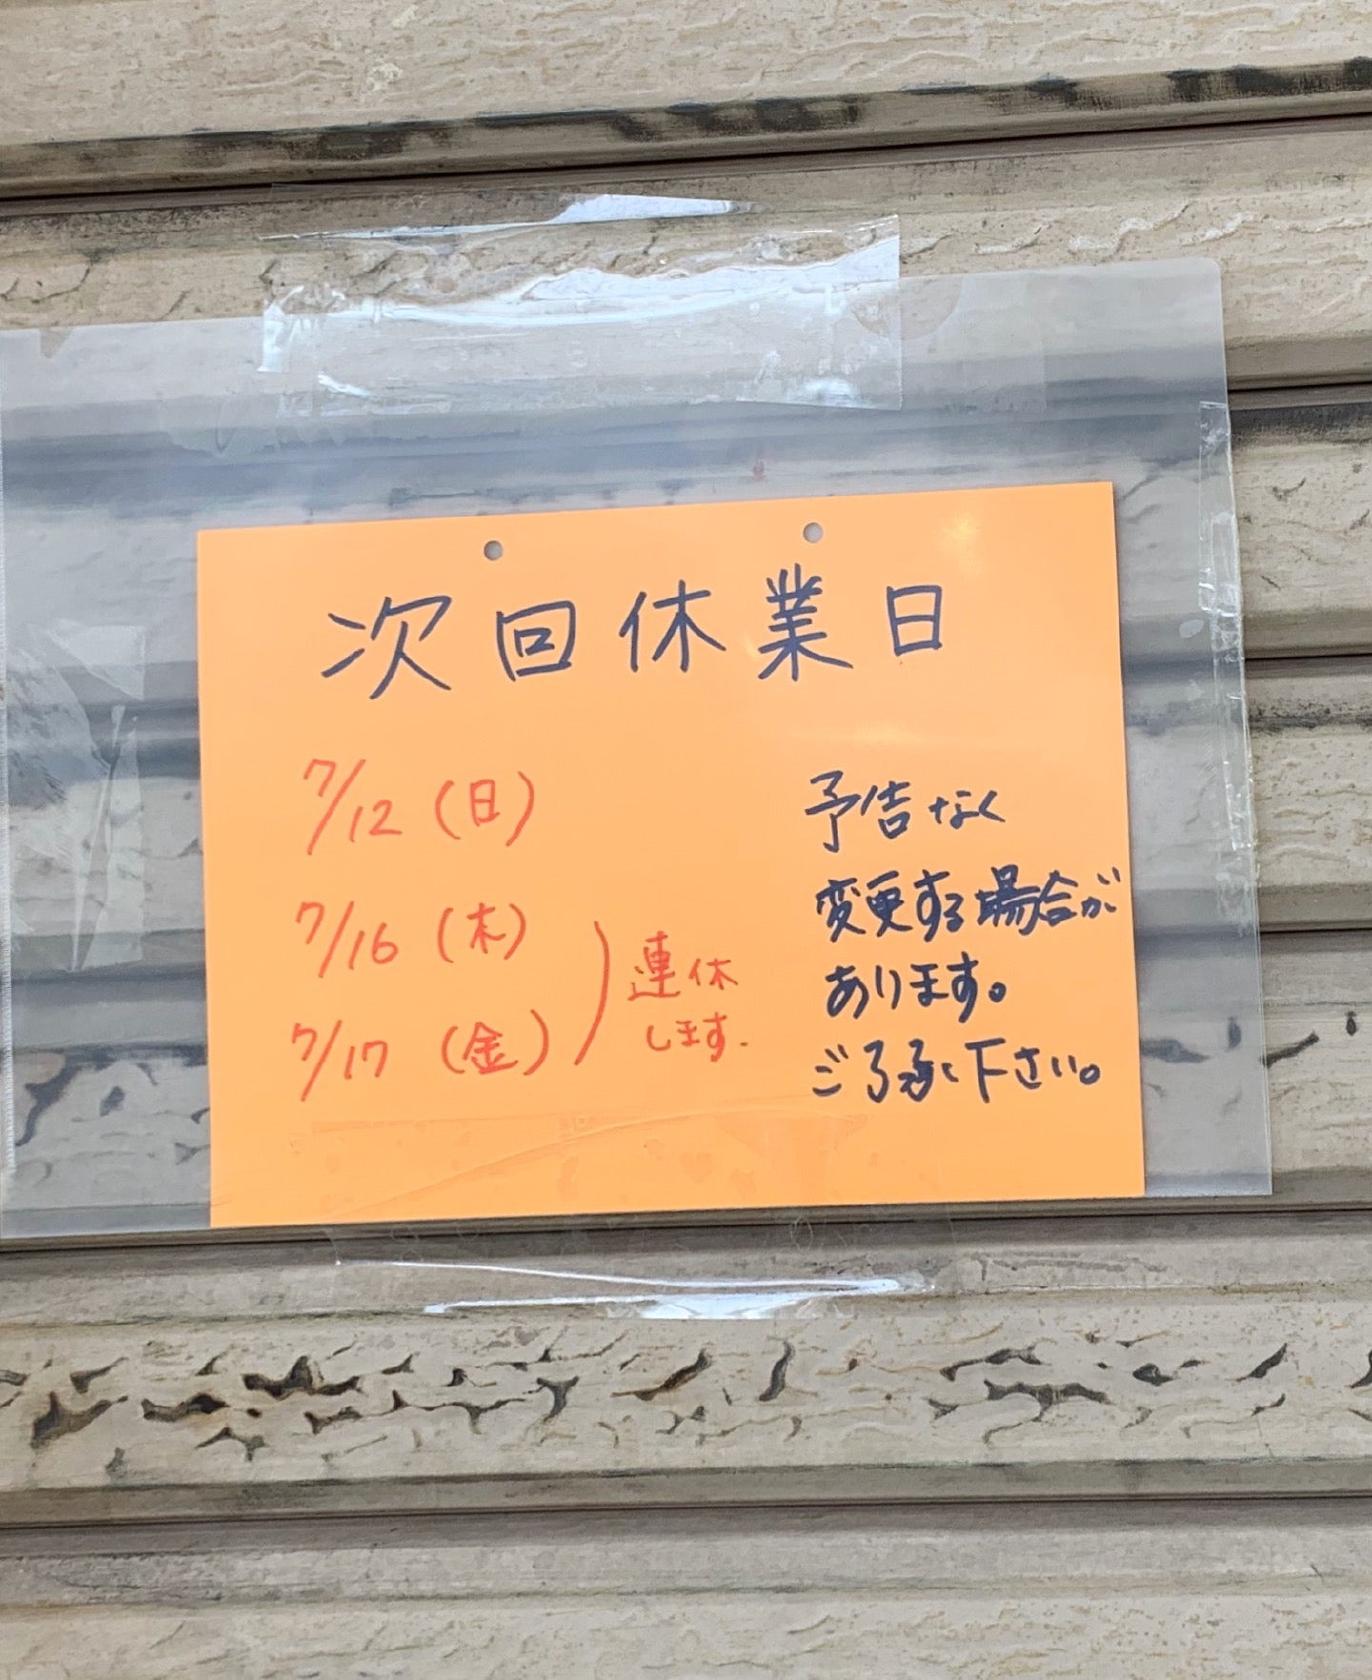 次回休業日
7/12(日)
7/16(木)
7/17(金)
連休
します.
予告なく
変更する場合が
あります。
ご了承下さい。